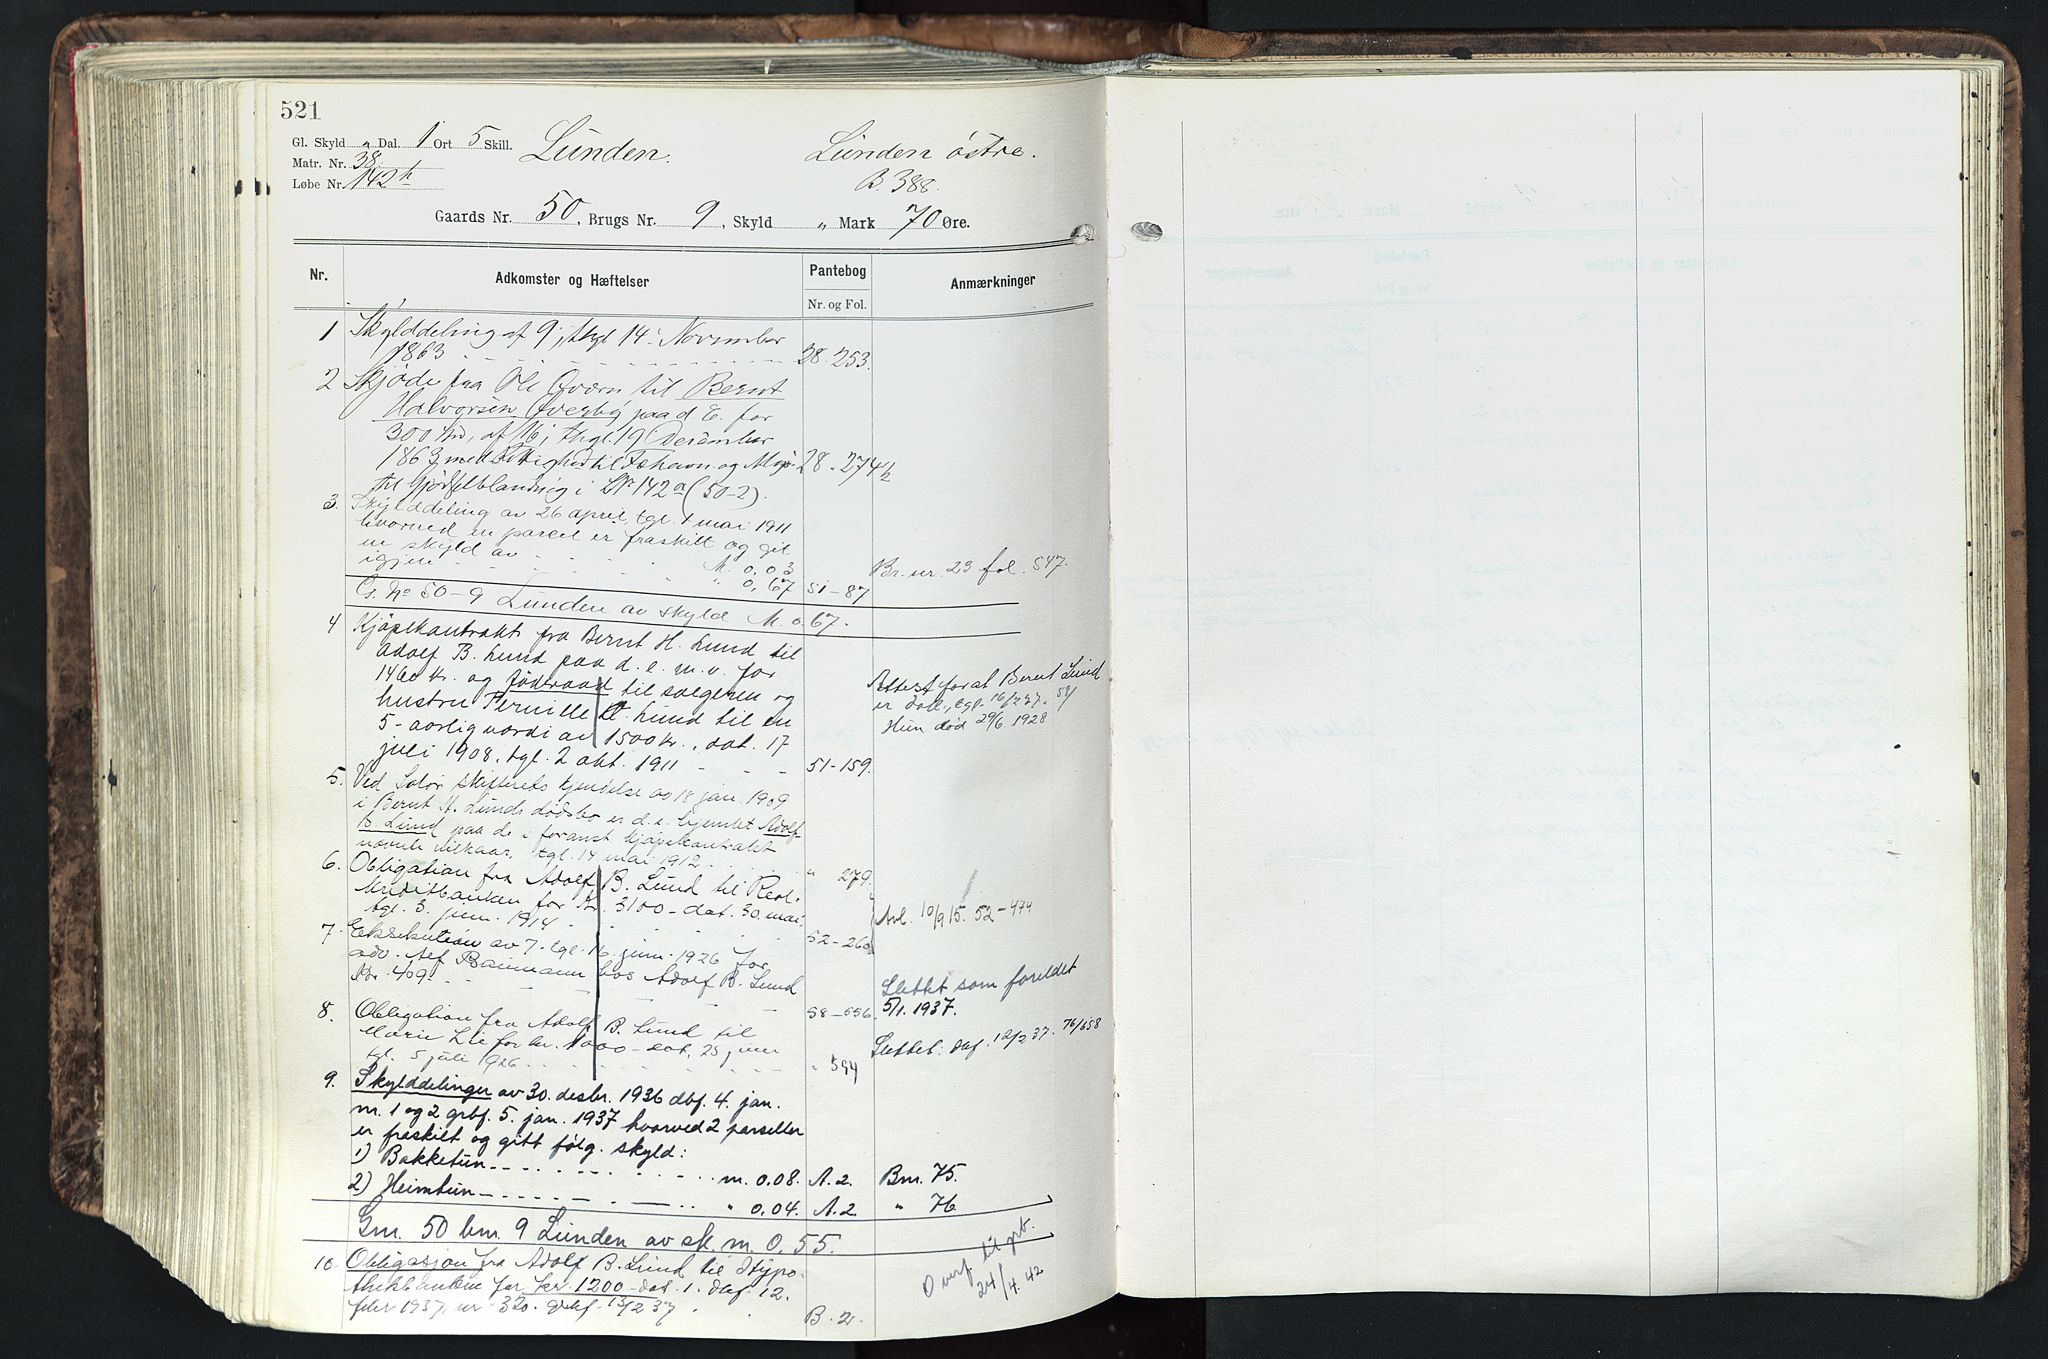 521
Gl. Skyld „ Dal. 1 Ort 5 Skill. Lunden. Lunden østre.
Matr. Nr. 38
Løbe Nr. 142h B. 388.
Gaards Nr. 50, Brugs Nr. 9, Skyld „ Mark 70 Øre.
Nr. Adkomster og Hæftelser Pantebog Anmærkninger
Nr. og Fol.
1 Skylddeling af 9, thgl 14 November
1863 28-253.
2 Skjøde fra Ole Overn til Bernt
Halvorsen Overby paa d. E. for
300 Spd, af 16, thgl. 19 December
1863 med Rettighed til Fæhavn og 28-274b
til Gjødselblanding i LNr 142a (50-2).
3. Skylddeling av 26 april, tgl. 1 mai 1911
hvorved en parcel er fraskilt og git
en skyld av M. 0,03 Br. nr. 23 fol. 547.
igjen „ 0,67 51-87
G. No 50-9 Lunden av skyld M. 0.67.
4 Kjøpekontrakt fra Bernt H. Lund til
Adolf B. Lund paa d. e. m. v. for
1460 kr. og Föderaad til sælgeren og Attest for at Bernt Lund
hustru Pernille Lund til en er död, tgl. 16/7 27. 58/
5-aarlig værdi av 1500 kr., dat. 17 Hun död 29/6 1928
juli 1908, tgl. 2 okt. 1911 51-159.
5. Ved Solør skifterets kjendelse av 18 jan. 1909
i Bernt H. Lunds dödsbo er d. e. hjemlet Adolf
B. Lund paa de i foranst. kjöpekontrakt
nævnte vilkaar, tgl. 14 mai 1912. „ 279.
6. Obligation fra Adolf B. Lund til Real-
kreditbanken for kr. 3100- dat. 30. mai,
tgl. 3. juni 1914 52-260 Avl. 10/9 15. 52-474
7. Eksekution av 7. tgl. 16. juni 1926 for
adv. Alf Baumann hos Adolf B. Lund
Kr. 409. 58-556. Slettet som foreldet
5/1. 1937.
8. Obligation fra Adolf B. Lund til
Marie Lie for kr. 1000- dat. 25 juni
tgl. 5 juli 1926 „ 594 Slettet: dbf. 12/2 37. 76/658
9. Skylddelinger av 30. desbr. 1936 dbf. 4. jan.
nr. 1 og 2 grbf. 5. jan. 1937 hvorved 2 parseller
er fraskilt og gitt følg. skyld:
1) Bakketun m. 0.08. A. 2. Bnr. 75.
2) Heimtun „ 0.04. A. 2. „ 76
Gnr. 50 bnr. 9 Lunden av sk. m. 0.55.
10. Obligasjon fra Adolf B. Lund til Hypo-
thekbanken for kr. 1200- dat. 1. dbf. 12.
febr 1937, nr. 320. grbf. 13/2 37 B. 2.
Overf. til grb.
24/4. 42